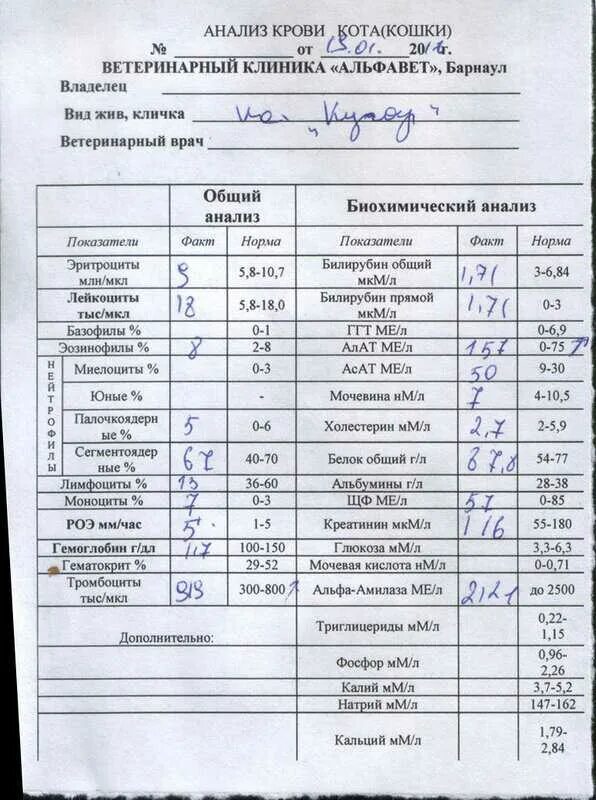 АНАЛИЗ КРОВИ КОТА(КОШКИ)
№ от 13.01. 2012г.
ВЕТЕРИНАРНЫЙ КЛИНИКА «АЛЬФАВЕТ», Барнаул
Владелец
Вид жив, кличка
Ветеринарный врач
Общий анализ Биохимический анализ
Показатели Факт Норма Показатели Факт Норма
Эритроциты млн/мкл 9 5,8-10,7 Билирубин общий мкМ/л 1,71 3-6,84
Лейкоциты тыс/мкл 18 5,8-18,0 Билирубин прямой мкМ/л 1,71 0-3
Базофилы % 0-1 ГГТ МЕ/л 0-6,9
Эозинофилы % 8 2-8 АлАТ МЕ/л 157 0-75 ↑
НЕЙТРОФИЛЫ
Миелоциты % 0-3 АсАТ МЕ/л 50 9-30
Юные % - Мочевина нМ/л 7 4-10,5
Палочкоядерн ые % 5 0-6 Холестерин мМ/л 2,7 2-5,9
Сегментоядер ные % 67 40-70 Белок общий г/л 87,8 54-77
Лимфоциты % 13 36-60 Альбумины г/л 28-38
Моноциты % 7 0-3 ЩФ МЕ/л 57 0-85
РОЭ мм/час 5 1-5 Креатинин мкМ/л 116 55-180
Гемоглобин г/дл 117 100-150 Глюкоза мМ/л 3,3-6,3
Гематокрит % 29-52 Мочевая кислота нМ/л 0-0,71
Тромбоциты тыс/мкл 919 300-800 ↑ Альфа-Амилаза МЕ/л 2121 до 2500
Дополнительно: Триглицериды мМ/л 0,22-1,15
Фосфор мМ/л 0,96-2,26
Калий мМ/л 3,7-5,2
Натрий мМ/л 147-162
Кальций мМ/л 1,79-2,84